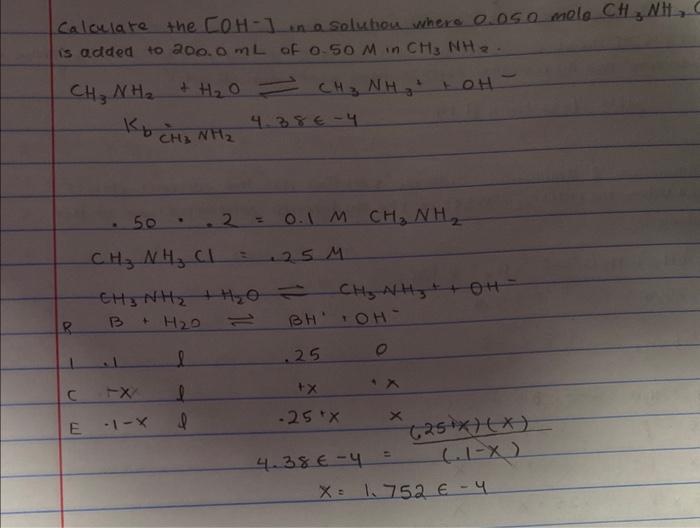 Calculate the [OH-] in a solution where 0.050 mole CH3NH2
is added to 200.0 mL of 0.50 M in CH3 NH2.
CH3 NH2 + H2O ⇌ CH3 NH3+ + OH-
Kb CH3 NH2 4.38E-4
.50 · .2 = 0.1 M CH3 NH2
CH3 NH3 Cl = .25 M
CH3 NH2 + H2O ⇌ CH3 NH3+ + OH-
R B + H2O ⇌ BH+ + OH-
I .1 l .25 0
C -x l +x +x
E .1-x l .25+x x
4.38E-4 = (.25+x)(x) / (.1-x)
x = 1.752E-4